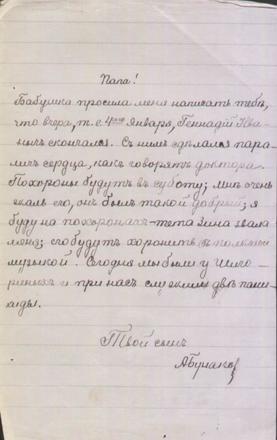 Папа!
Бабушка просила меня написать тебѣ,
что вчера, т.е. 4го Января, Геннадій Ива-
нычъ скончался. Съ нимъ сдѣлался пара-
личъ сердца, какъ говорятъ доктора.
Похороны будутъ въ суботу; мнѣ очень
жаль его, онъ былъ такой добрый; я
буду на похоронахъ-тетя Зина звала
меня; его будутъ хоронить съ полковой
музыкой. Сегодня мы были у
и при насъ служили двѣ пани-
хиды.
Твой сынъ
АБунаков